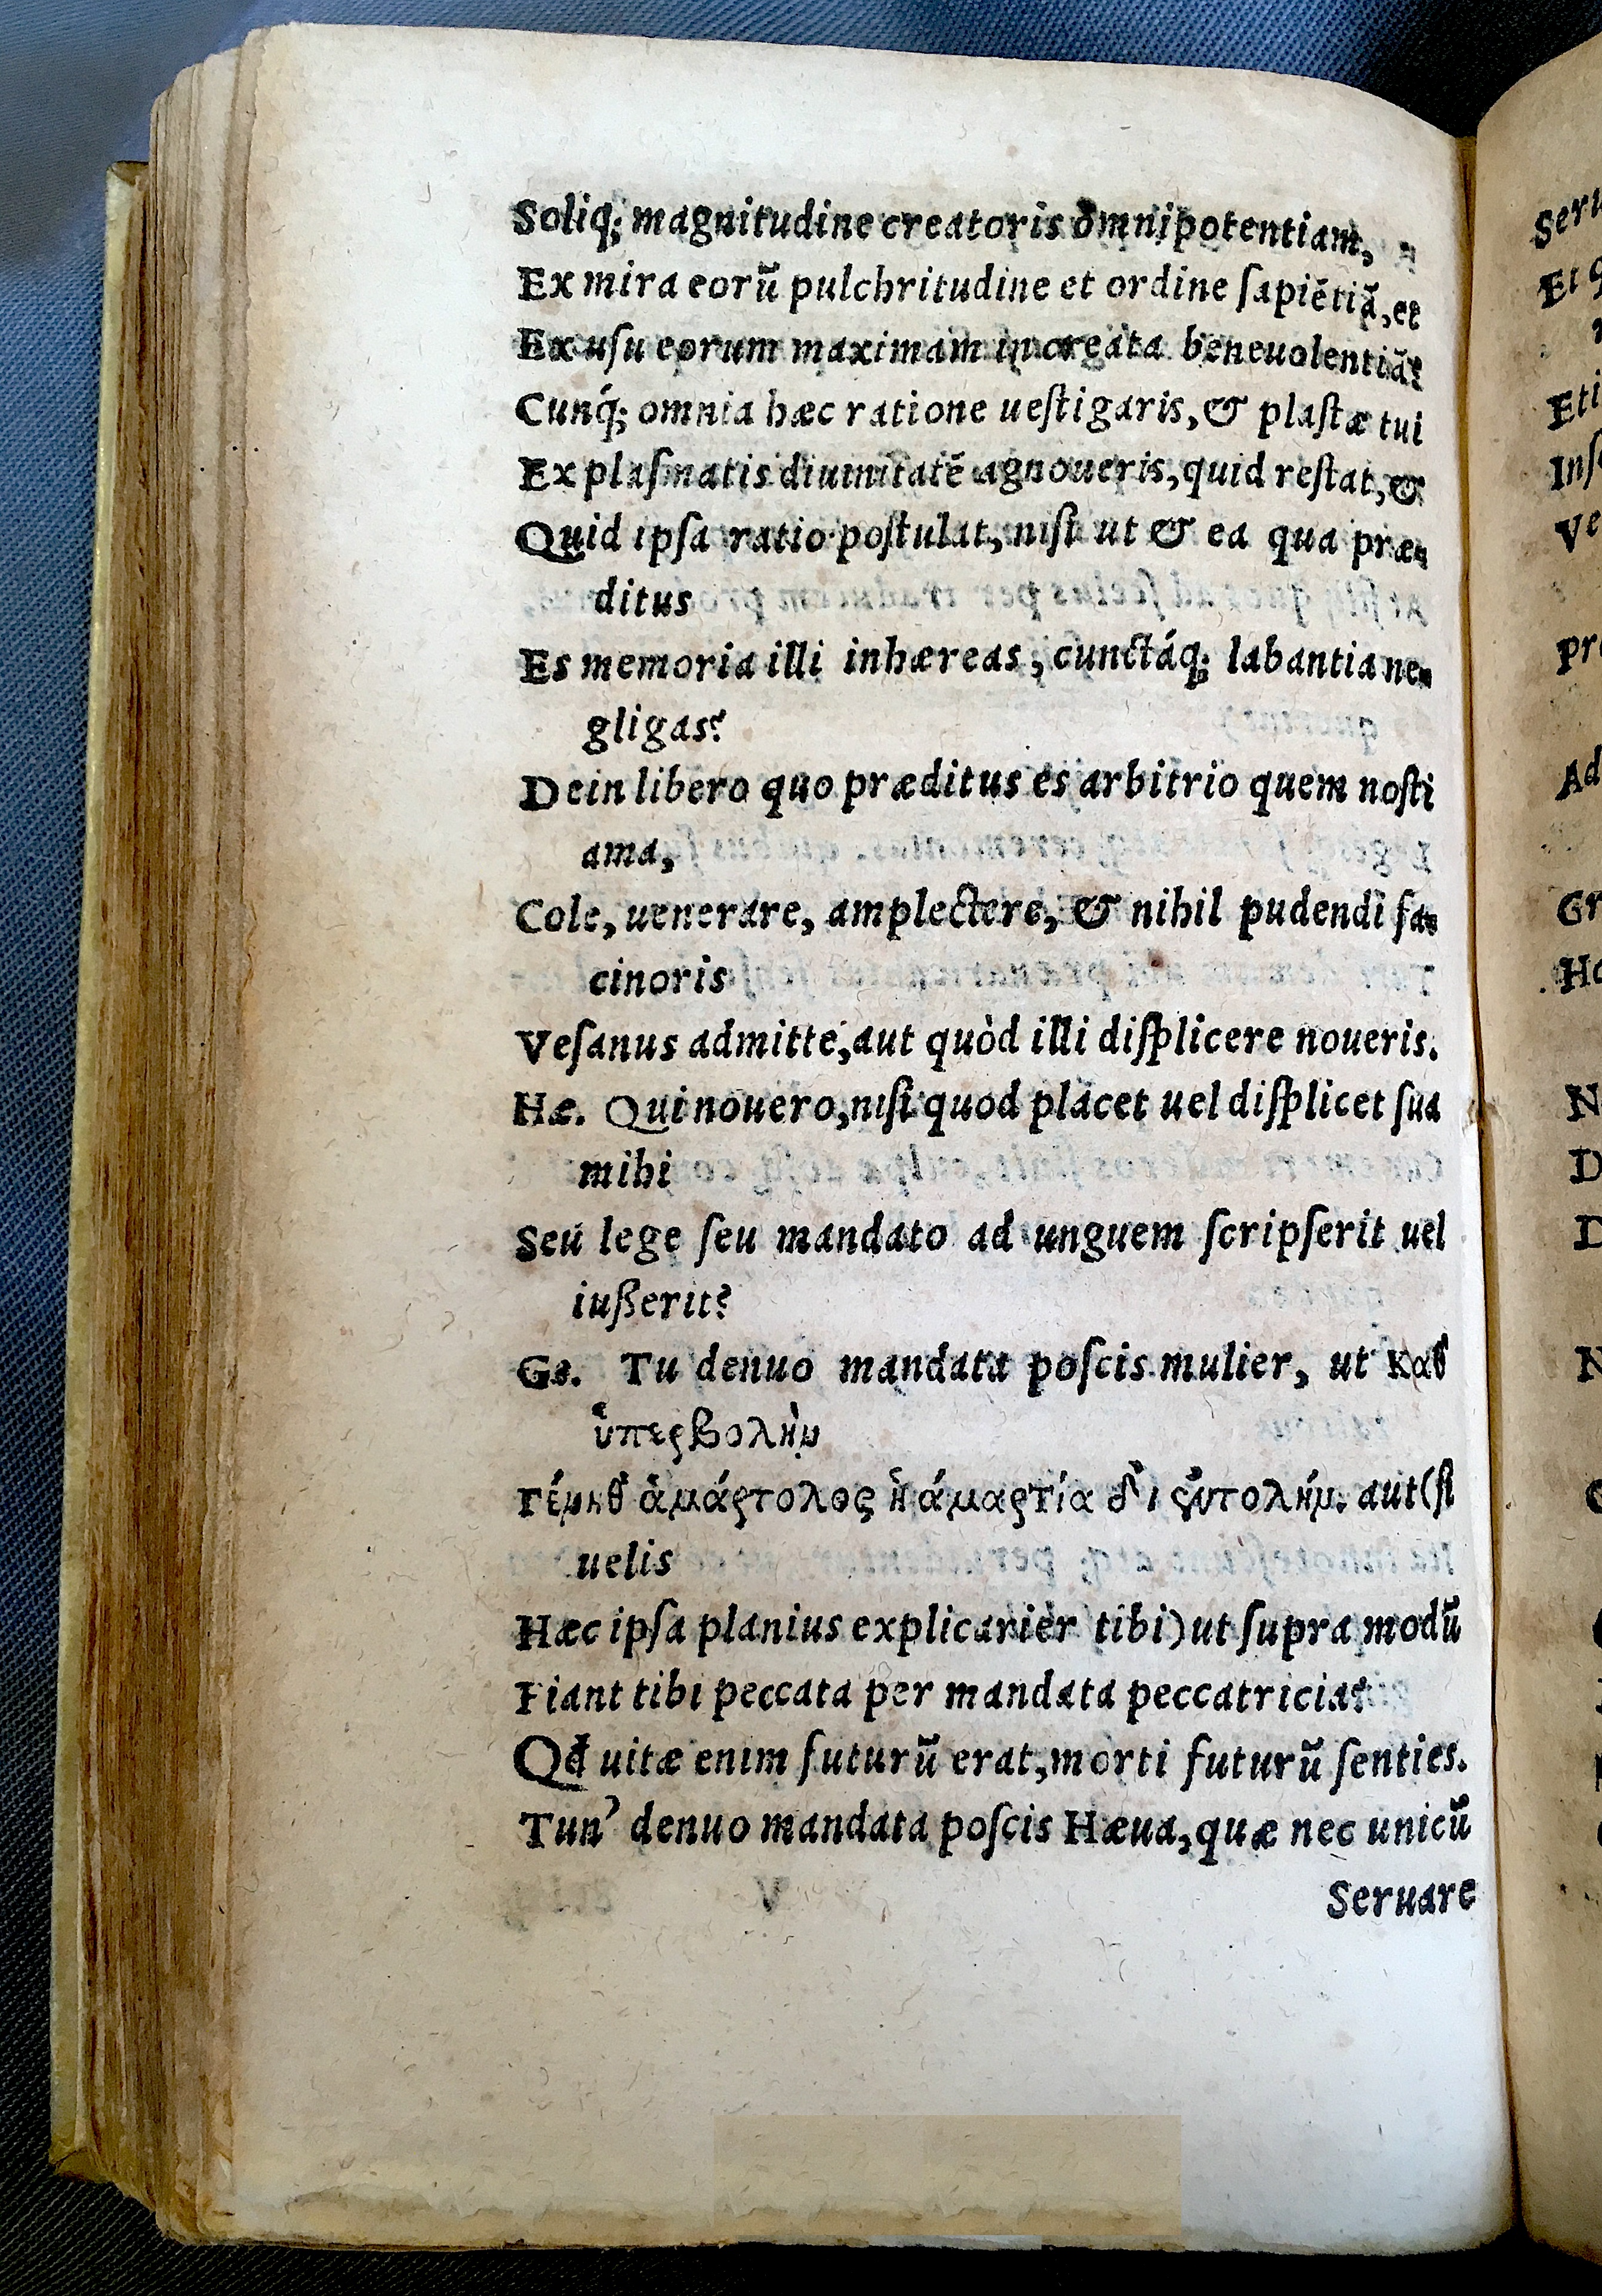 Soliq; magnitudine creatoris omnipotentiam,
Ex mira eorū pulchritudine et ordine ſapiētiā, et
Ex uſu eorum maximam in creata beneuolentiā?
Cunq́; omnia hæc ratione ueſtigaris, & plaſtæ tui
Ex plaſmatis diuinitatē agnoueris, quid reſtat, &
Quid ipſa ratio poſtulat, niſi ut & ea qua præ-
ditus
Es memoria illi inhæreas, cunctáq; labantia ne-
gligas?
Dein libero quo præditus es arbitrio quem noſti
ama,
Cole, uenerare, amplectere, & nihil pudendi fa-
cinoris
Veſanus admitte, aut quòd illi diſplicere noueris.
Hæ. Qui nouero, niſi quod placet uel diſplicet sua
mihi
Seu lege ſeu mandato ad unguem ſcripſerit uel
iuſſerit?
Ge. Tu denuo mandata poſcis mulier, ut καθ
ὑπερβολὴν
Γένηθ ἁμάρτολος ἡ ἁμαρτία δ'ι ἐντολήν. aut (ſi
uelis
Hæc ipſa planius explicarier tibi) ut ſupra modū
Fiant tibi peccata per mandata peccatricia?
Qd uitæ enim futurū erat, morti futurū ſenties.
Tun' denuo mandata poſcis Hæua, quæ nec unicū
Seruare
Et
Eti
Inſ
Ad
Gr
Ho
N
D
D
N